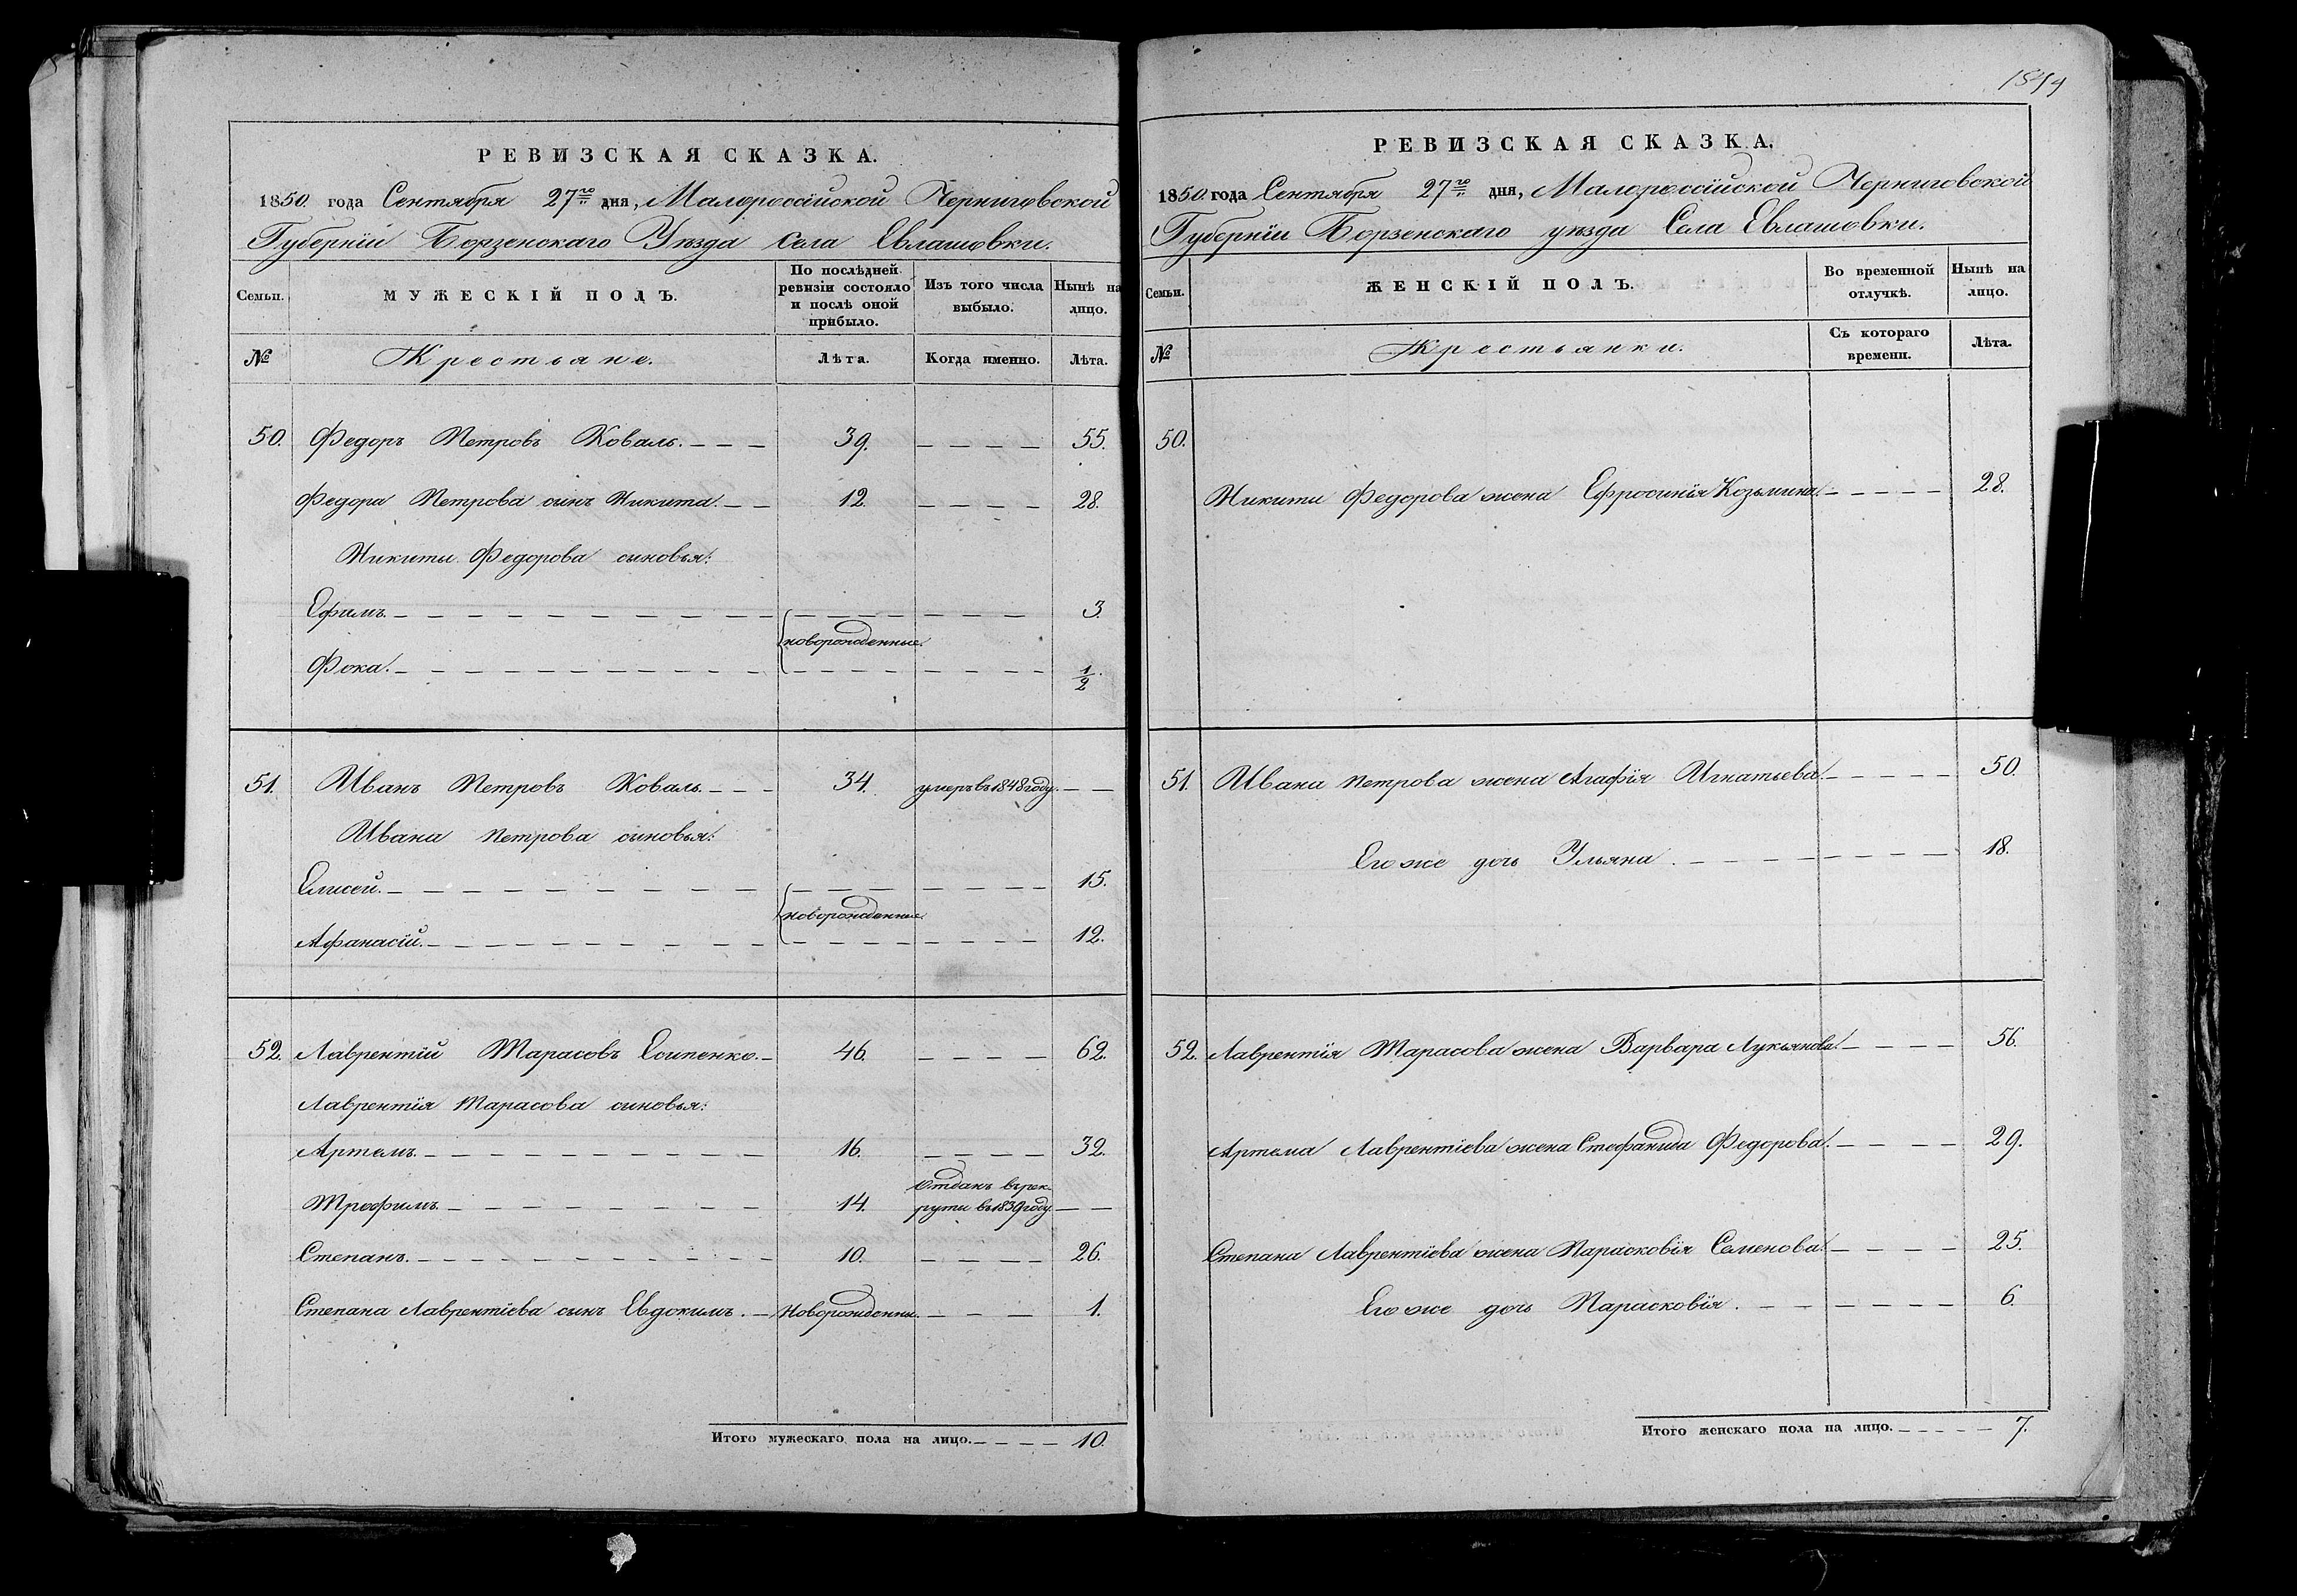 РЕВИЗСКАЯ СКАЗКА.
1850. года Сентября 27го дня, Малороссійской Черниговской
Губерніи Борзенскаго Уѣзда Села Евлашовки.
Семьи. МУЖЕСКІЙ ПОЛЪ. По послѣдней ревизіи состояло и послѣ оной прибыло. Изъ того числа выбыло. Нынѣ на лицо.
№ Крестьяне. Лѣта. Когда именно. Лѣта.
50. Федоръ Петровъ Коваль. 39. 55.
Федора Петрова сынъ Никита. 12. 28.
Никиты Федорова сыновья:
Ефимъ. 3.
новорожденные.
Фока. 1/2.
51. Иванъ Петровъ Коваль. 34. умеръ въ 1848 году.
Ивана Петрова сыновья:
Елисей. 15.
новорожденные.
Афанасій. 12.
52. Лаврентій Тарасовъ Есипенко. 46. 62.
Лаврентія Тарасова сыновья:
Артемъ. 16. 32.
Трофимъ. 14. Отданъ въ рек-
рути въ 1839 году.
Степанъ. 10. 26.
Степана Лаврентіева сынъ Евдокимъ. Новорожденны. 1.
Итого мужескаго пола на лицо. 10.
РЕВИЗСКАЯ СКАЗКА.
1850. года Сентября 27го дня, Малороссійской Черниговской
Губерніи Борзенскаго уѣзда Села Евлашовки.
Семьи. ЖЕНСКІЙ ПОЛЪ. Во временной отлучкѣ. Нынѣ на лицо.
№ Крестьянки. Съ котораго времени. Лѣта.
50.
Никити Федорова жена Ефросинія Козьмина. 28.
51. Ивана Петрова жена Агафія Игнатьева. 50.
Его же дочь Ульяна. 18.
52. Лаврентія Тарасова жена Варвара Лукьянова. 56.
Артема Лаврентіева жена Стефанида Федорова. 29.
Степана Лаврентіева жена Парасковія Семенова. 25.
Его же дочь Парасковія. 6.
Итого женскаго пола на лицо. 7.